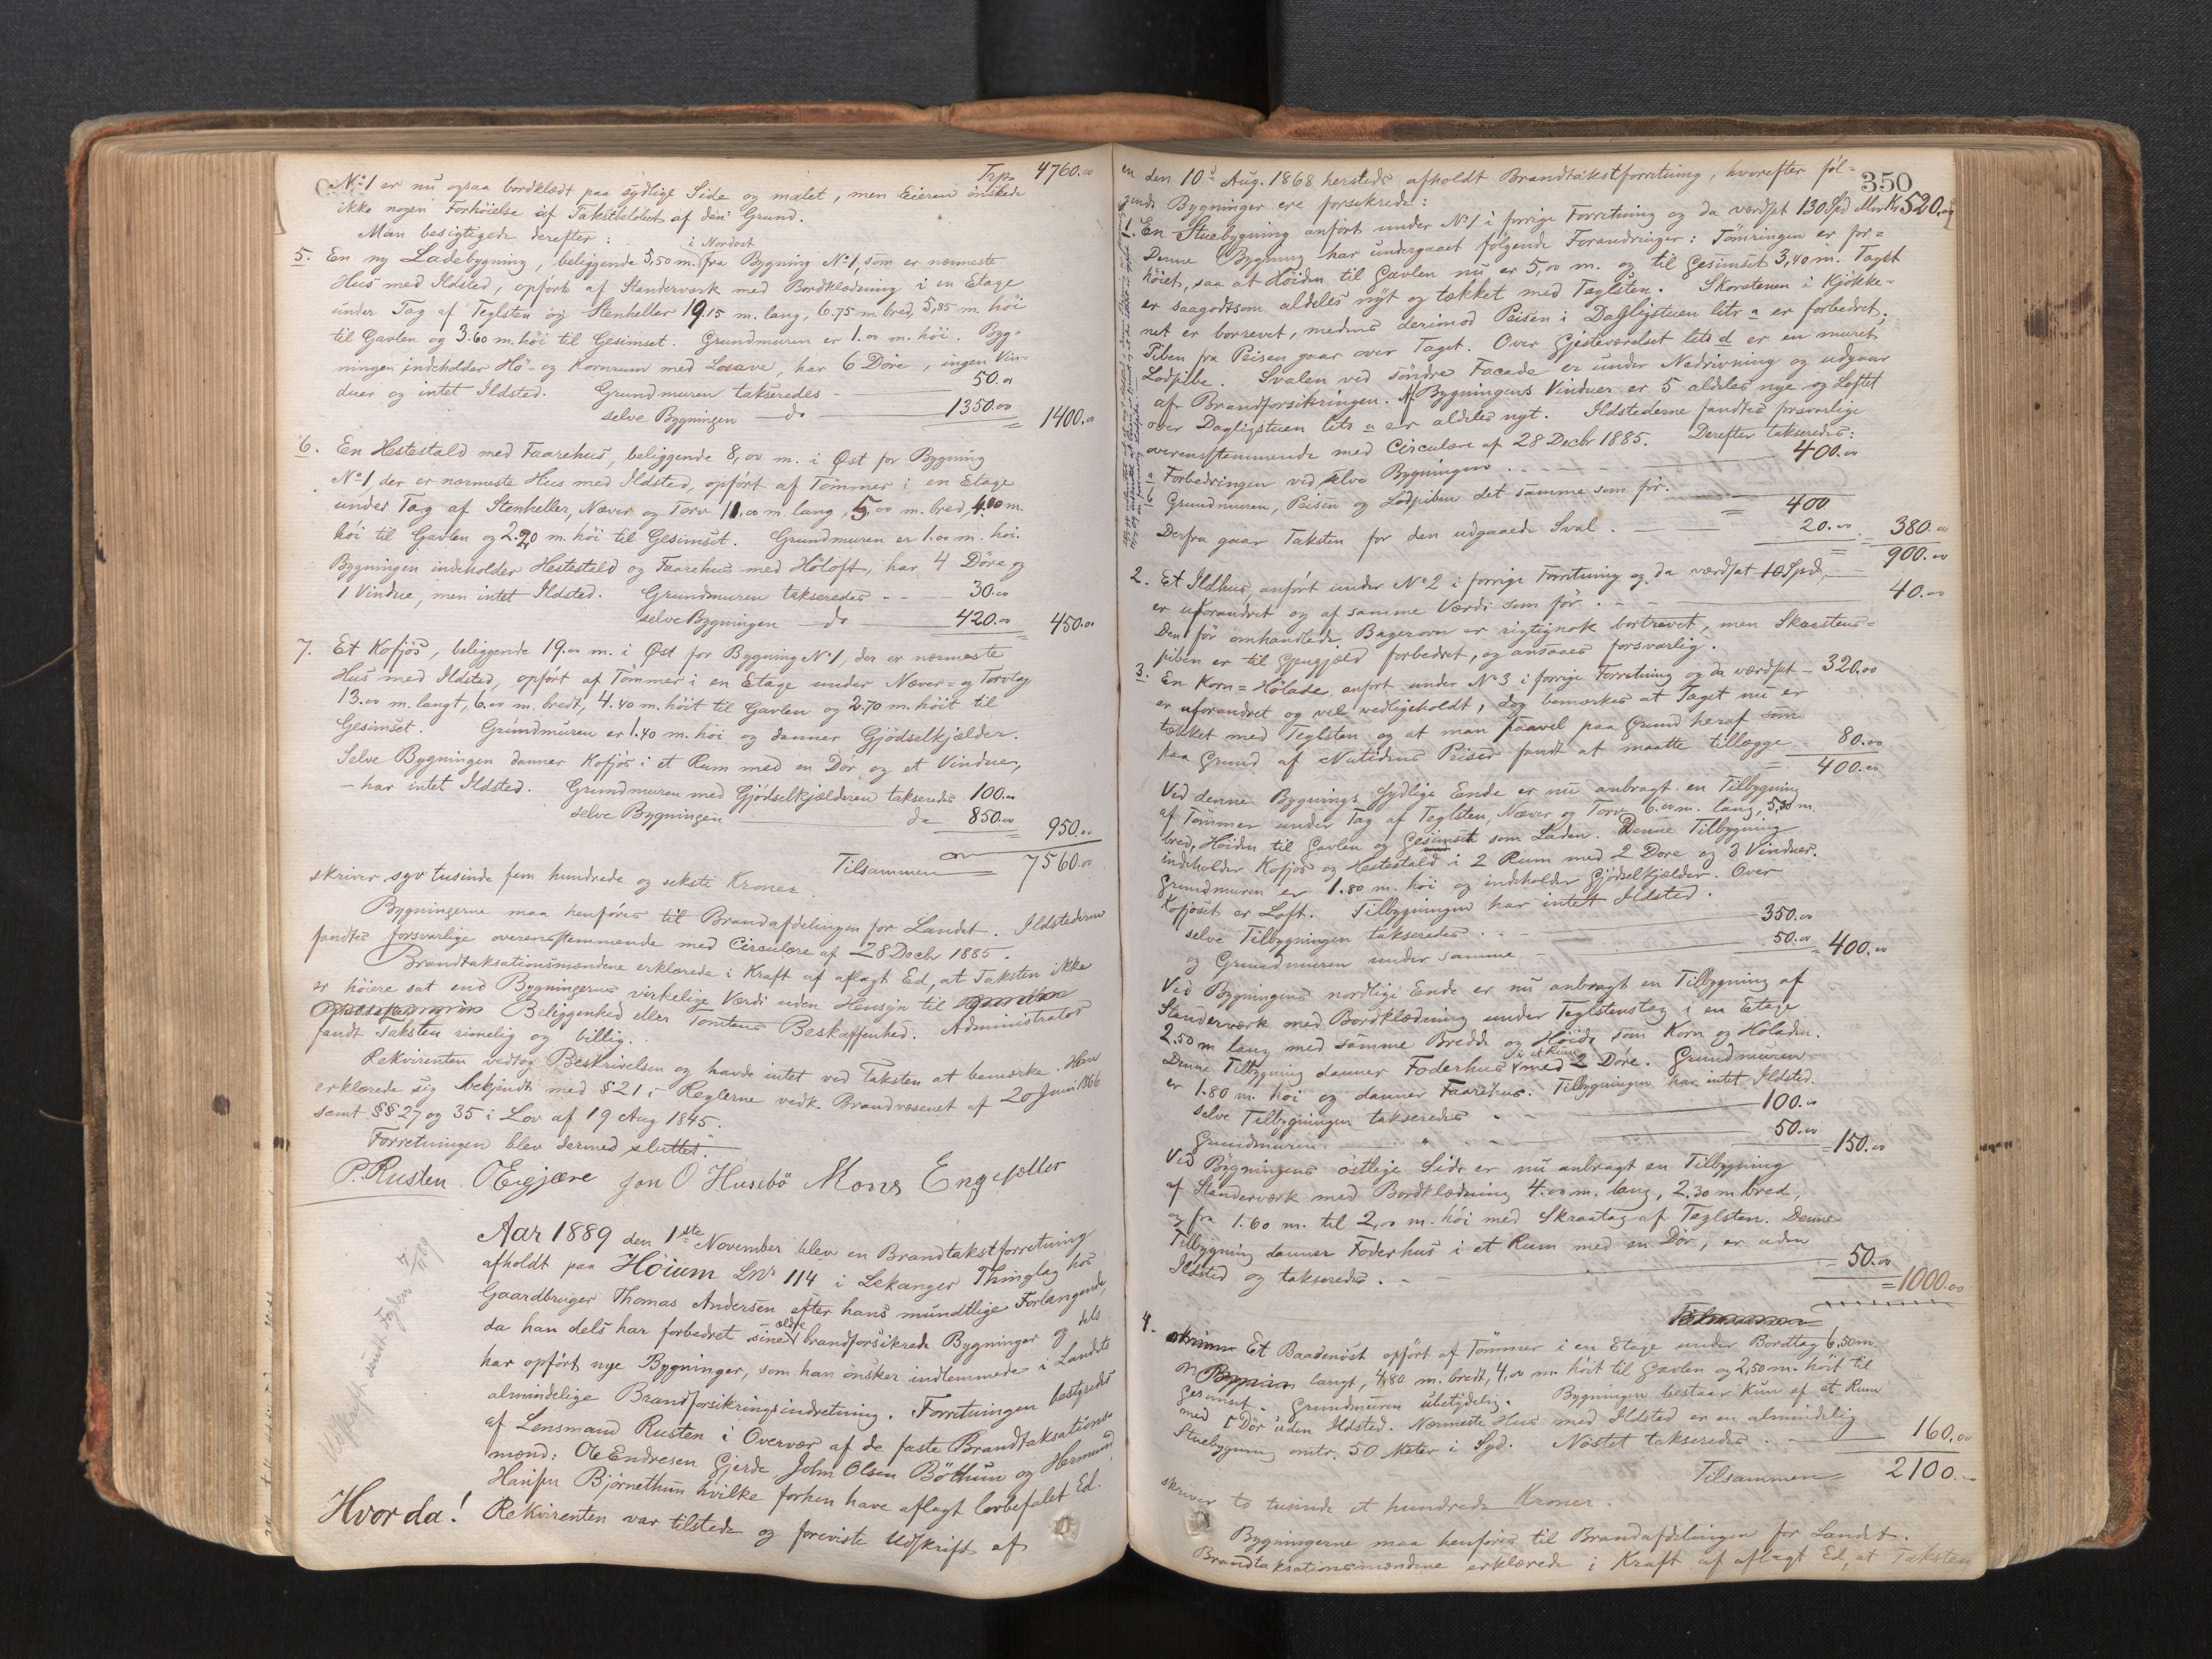 Trp. 4760.00
No 1 er nu ogsaa bordklædt paa sydlige Side og malet, men Eieren ønskede
ikke nogen Forhöielse af Takstbelöbet af den Grund.
Man besigtigede derefter:
5. En ny Ladebygning, beliggende 5,50 m. i Nordost fra Bygning No 1, som er nærmeste
Hus med Ildsted, opfört af Standerværk med Bordklædning i en Etage
under Tag af Teglsten og Stenheller 19.15 m. lang, 6.75 m. bred, 5,85 m. höi
til Gavlen og 3.60 m. höi til Gesimset. Grundmuren er 1.00 m. höi. Byg-
ningen indeholder Hö- og Kornrum med Loeave, har 6 Döre, ingen Vin-
duer og intet Ildsted. Grundmuren takseredes - 50.00
selve Bygningen do 1350.00 1400.00
6. En Hestestald med Faarehus, beliggende 8,00 m. i Øst for Bygning
No 1, der er nærmeste Hus med Ildsted, opfört af Tömmer i en Etage
under Tag af Stenheller, Næver og Torv 11.00 m. lang, 5,00 m. bred, 4.00 m.
höi til Gavlen og 2.20 m. höi til Gesimset. Grundmuren er 1.00 m. höi.
Bygningen indeholder Hestestald og Faarehus med Höloft, har 4 Döre og
1 Vindue, men intet Ildsted. Grundmuren takseredes - - 30.00
selve Bygningen do 420.00 450.00
7. Et Kofjös, beliggende 19.00 m. i Øst for Bygning No 1, der er nærmeste
Hus med Ildsted, opfört af Tömmer i en Etage under Næver- og Torvtag
13.00 m. langt, 6.00 m. bredt, 4.40 m. höit til Gavlen og 2.70 m. höit til
Gesimset. Grundmuren er 1.40 m. höi og danner Gjödselkjælder.
Selve Bygningen danner Kofjös i et Rum med en Dör og et Vindue,
- har intet Ildsted. Grundmuren med Gjödselkjælderen takseredes 100.00
selve Bygningen do 850.00 950.00
Tilsammen 7560.00
skriver syv tusinde fem hundrede og seksti Kroner
Bygningerne maa henföres til Brandafdelingen for Landet. Ildstederne
fandtes forsvarlige overensstemmende med Circulære af 28 Decbr 1885.
Brandtaksationsmændene erklærede i Kraft af aflagt Ed, at Taksten ikke
er höiere sat end Bygningernes virkelige Værdi uden Hensyn til
Beliggenhed eller Tomtens Beskaffenhed. Administrator
fandt Taksten rimelig og billig.
Rekvirenten vedtog Beskrivelsen og havde intet ved Taksten at bemærke. Han
erklærede sig bekjendt med § 21 i Reglerne vedk. Brandvæsenet af 20 Juni 1866
samt §§ 27 og 35 i Lov af 19 Aug 1845.
Forretningen blev dermed sluttet.
P. Rusten OEigjære Jon O Husebö Mons Engesæter
Aar 1889 den 1ste November blev en Brandtakstforretning
afholdt paa Höium Lnr 114 i Lekanger Thinglag hos
Gaardbruger Thomas Andersen efter hans mundtlige Forlangende,
da han dels har forbedret sine ældre brandforsikrede Bygninger og dels
har opfört nye Bygninger, som han önsker indlemmede i Landets
almindelige Brandforsikringsindretning. Forretningen bestyredes
af Lensmand Rusten i Overvær af de faste Brandtaksations-
mænd: Ole Endresen Gjerde, John Olsen Böthun og Hermund
Hansen Björnethun hvilke forhen have aflagt lovbefalet Ed.
Hvor da! Rekvirenten var tilstede og foreviste Udskrift af
Udskrift sendt Fogden 7/11 89
350
en den 10de Aug. 1868 hersteds afholdt Brandtakstforretning, hvorefter föl-
gende Bygninger ere forsekrede:
1. En Stuebygning anfört under No 1 i forrige Forretning og da værdsat 130 Spd eller Kr 520.00
Denne Bygning har undergaaet fölgende Forandringer: Tömringen er for-
höiet, saa at Höiden til Gavlen nu er 5,00 m. og til Gesimset 3,40 m. Taget
er saagodtsom aldeles nyt og tækket med Teglsten. Skorstenen i Kjökke-
net er borrevet, medens derimod Peisen i Dagligstuen litr a er forbedret;
Piben fra Peisen gaar over Taget. Over Gjesteværelset litr d er en muret
Lodpibe. Svalen ved söndre Facade er under Nedrivning og udgaar
af Brandforsikringen. Af Bygningens Vinduer er 5 aldeles nye og Loftet
over Dagligstuen litr a er aldeles nyt. Ildstederne fandtes forsvarlige
overensstemmende med Circulære af 28 Decbr 1885. Derefter takseredes:
a Forbedringen ved selve Bygningen 400.00
b Grundmuren, Peisen og Lodpiben det samme som för.
400
Derfra gaar Taksten for den udgaaede Sval 20.00 380.00
900.00
2. Et Ildhus, anfört under No 2 i forrige Forretning og da værdsat 10 Spd,
er uforandret og af samme Værdi som för 40.00
Den för omhandlede Bagerovn er rigtignok bortrevet, men Skorstens-
piben er til Gjengjæld forbedret, og ansaaes forsvarlig.
3. En Korn- Hölade, anfört under No 3 i forrige Forretning og da værdsat 320.00
er uforandret og vel vedligeholdt, dog bemærkes at Taget nu er
tækket med Teglsten og at man saavel paa Grund heraf som
paa Grund af Nutidens Priser fandt at maatte tillægge 80.00
400.00
Ved denne Bygnings sydlige Ende er nu anbragt en Tilbygning
af Tömmer under Tag af Teglsten, Næver og Torv 6.00 m. lang, 5,50 m.
bred, Höiden til Gavlen og Gesimset som Laden. Denne Tilbygning
indeholder Kofjös og Hestestald i 2 Rum med 2 Döre og 3 Vinduer.
Grundmuren er 1.80 m. höi og indeholder Gjödselkjælder. Over
Kofjöset er Loft. Tilbygningen har intet Ildsted.
selve Tilbygningen takseredes 350.00
og Grundmuren under samme 50.00 400.00
Ved Bygningens nordlige Ende er nu anbragt en Tilbygning af
Standerværk med Bordklædning under Teglstenstag i en Etage
2.50 m lang med samme Bredde og Höide som Korn og Höladen.
Denne Tilbygning danner Foderhus i et Rum med 2 Döre. Grundmuren
er 1.80 m. höi og danner Faarehus. Tilbygningen har intet Ildsted.
selve Tilbygningen takseredes 100.00
Grundmuren " 50.00 150.00
Ved Bygningens östlige Side er nu anbragt en Tilbygning
af Standerværk med Bordklædning 4.00 m. lang, 2.30 m bred,
og fra 1.60 m. til 2,00 m. höi med Skraatag af Teglsten. Denne
Tilbygning danner Foderhus i et Rum med en Dör, er uden
Ildsted og takseredes 50.00
1000.00
Tilsammen
4. Et Baadenöst opfört af Tömmer i en Etage under Bordtag 6.50 m.
langt, 4,80 m. bredt, 4,00 m. höit til Gavlen og 2,50 m. höit til
Gesimset. Grundmuren ubetydelig. Bygningen bestaar kun af et Rum
med 1 Dör uden Ildsted. Nærmeste Hus med Ildsted er en almindelig
Stuebygning omtr. 50 Meter i Syd. Nöstet takseredes 160.00
Tilsammen 2100.-
skriver to tusinde et hundrede Kroner.
Bygningerne maa henföres til Brandafdelingen for Landet.
Brandtaksationsmændene erklærede i Kraft af aflagt Ed, at Taksten